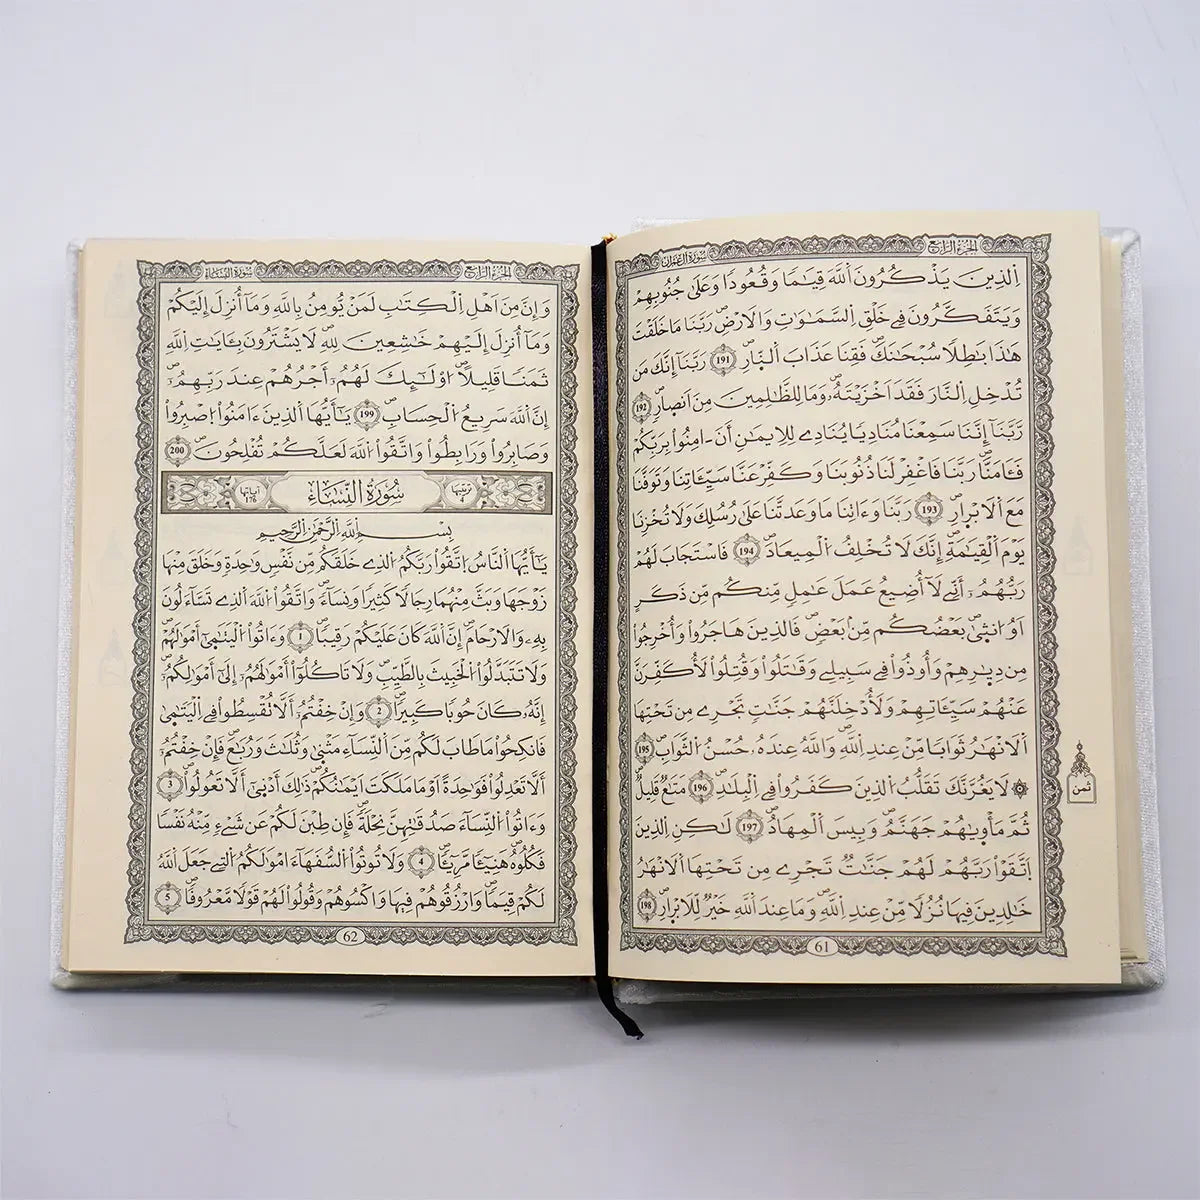 الجزء الرابع
سورة آل عمران
اِ۬لذِينَ يَذْكُرُونَ اَ۬للَّهَ قِيَٰماٗ وَقُعُوداٗ وَعَلَىٰ جُنُوبِهِمْ
وَيَتَفَكَّرُونَ فِے خَلْقِ اِ۬لسَّمَٰوَٰتِ وَالَارْضِ رَبَّنَا مَا خَلَقْتَ
هَٰذَا بَٰطِلاٗ سُبْحَٰنَكَ فَقِنَا عَذَابَ اَ۬لنّ۪ارِ 191 رَبَّنَآ إِنَّكَ مَن
تُدْخِلِ اِ۬لنَّارَ فَقَدَ اَخْزَيْتَهُۥ وَمَا لِلظَّٰلِمِينَ مِنَ اَنص۪ارٖ 192
رَّبَّنَآ إِنَّنَا سَمِعْنَا مُنَادِياٗ يُنَادِے لِلِايمَٰنِ أَنَ اٰمِنُواْ بِرَبِّكُمْ
فَـَٔامَنَّا رَبَّنَا فَاغْفِرْ لَنَا ذُنُوبَنَا وَكَفِّرْ عَنَّا سَيِّـَٔاتِنَا وَتَوَفَّنَا
مَعَ اَ۬لَابْر۪ارِ 193 رَبَّنَا وَءَاتِنَا مَا وَعَدتَّنَا عَلَىٰ رُسُلِكَ وَلَا تُخْزِنَا
يَوْمَ اَ۬لْقِيَٰمَةِ إِنَّكَ لَا تُخْلِفُ اُ۬لْمِيعَادَ 194 فَاسْتَجَابَ لَهُمْ
رَبُّهُمُۥٓ أَنِّے لَآ أُضِيعُ عَمَلَ عَٰمِلٖ مِّنكُم مِّن ذَكَرٍ
اَوُ ا۟نث۪ىٰ بَعْضُكُم مِّنۢ بَعْضٖ فَالذِينَ هَاجَرُواْ وَأُخْرِجُواْ
مِن دِيٰ۪رِهِمْ وَأُوذُواْ فِے سَبِيلِے وَقَٰتَلُواْ وَقُتِلُواْ لَأُكَفِّرَنَّ
عَنْهُمْ سَيِّـَٔاتِهِمْ وَلَأُدْخِلَنَّهُمْ جَنَّٰتٖ تَجْرِے مِن تَحْتِهَا
اَ۬لَانْهَٰرُ ثَوَاباٗ مِّنْ عِندِ اِ۬للَّهِ وَاللَّهُ عِندَهُۥ حُسْنُ اُ۬لثَّوَابِ 195
۞ لَا يَغُرَّنَّكَ تَقَلُّبُ اُ۬لذِينَ كَفَرُواْ فِے اِ۬لْبِلَٰدِ 196 مَتَٰعٞ قَلِيلٞ
ثُمَّ مَأْو۪يٰهُمْ جَهَنَّمُ وَبِيسَ اَ۬لْمِهَادُ 197 لَٰكِنِ اِ۬لذِينَ
اَ۪تَّقَوْاْ رَبَّهُمْ لَهُمْ جَنَّٰتٞ تَجْرِے مِن تَحْتِهَا اَ۬لَانْهَٰرُ
خَٰلِدِينَ فِيهَا نُزُلاٗ مِّنْ عِندِ اِ۬للَّهِ وَمَا عِندَ اَ۬للَّهِ خَيْرٞ لِّلَابْر۪ارِ 198
ثمن
61
الجزء الرابع
سورة النساء
وَإِنَّ مِنَ اَهْلِ اِ۬لْكِتَٰبِ لَمَنْ يُّومِنُ بِاللَّهِ وَمَآ أُنزِلَ إِلَيْكُمْ
وَمَآ أُنزِلَ إِلَيْهِمْ خَٰشِعِينَ لِلهِ لَا يَشْتَرُونَ بِـَٔايَٰتِ اِ۬للَّهِ
ثَمَناٗ قَلِيلاً ا۟وْلَٰٓئِكَ لَهُمُۥٓ أَجْرُهُمْ عِندَ رَبِّهِمُۥٓ
إِنَّ اَ۬للَّهَ سَرِيعُ اُ۬لْحِسَابِ 199 يَٰٓأَيُّهَا اَ۬لذِينَ ءَامَنُواْ اُ۪صْبِرُواْ
وَصَابِرُواْ وَرَابِطُواْ وَاتَّقُواْ اُ۬للَّهَ لَعَلَّكُمْ تُفْلِحُونَ 200
ترتيبها 4 سُورَةُ النِّسَاءِ آياتها 176
بِسْمِ اِ۬للَّهِ اِ۬لرَّحْمَٰنِ اِ۬لرَّحِيمِ
يَٰٓأَيُّهَا اَ۬لنَّاسُ اُ۪تَّقُواْ رَبَّكُمُ اُ۬لذِے خَلَقَكُم مِّن نَّفْسٖ وَٰحِدَةٖ وَخَلَقَ مِنْهَا
زَوْجَهَا وَبَثَّ مِنْهُمَا رِجَالاٗ كَثِيراٗ وَنِسَآءٗ وَاتَّقُواْ اُ۬للَّهَ اَ۬لذِے تَسَّآءَلُونَ
بِهِۦ وَالَارْحَامَ إِنَّ اَ۬للَّهَ كَانَ عَلَيْكُمْ رَقِيباٗ 1 وَءَاتُواْ اُ۬لْيَتَٰم۪ىٰٓ أَمْوَٰلَهُمْ
وَلَا تَتَبَدَّلُواْ اُ۬لْخَبِيثَ بِالطَّيِّبِ وَلَا تَاكُلُوٓاْ أَمْوَٰلَهُمُۥٓ إِلَىٰٓ أَمْوَٰلِكُمُۥٓ
إِنَّهُۥ كَانَ حُوباٗ كَبِيراٗ 2 وَإِنْ خِفْتُمُۥٓ أَلَّا تُقْسِطُواْ فِے اِ۬لْيَتَٰم۪ىٰ
فَانكِحُواْ مَا طَابَ لَكُم مِّنَ اَ۬لنِّسَآءِ مَثْن۪ىٰ وَثُلَٰثَ وَرُبَٰعَ فَإِنْ خِفْتُمُۥٓ
أَلَّا تَعْدِلُواْ فَوَٰحِدَةً اَوْ مَا مَلَكَتَ اَيْمَٰنُكُمْ ذَٰلِكَ أَدْن۪ىٰٓ أَلَّا تَعُولُواْ 3
وَءَاتُواْ اُ۬لنِّسَآءَ صَدُقَٰتِهِنَّ نِحْلَةٗ فَإِن طِبْنَ لَكُمْ عَن شَےْءٖ مِّنْهُ نَفْساٗ
فَكُلُوهُ هَنِيٓـٔاٗ مَّرِيٓـٔاٗ 4 وَلَا تُوتُواْ اُ۬لسُّفَهَآءَ امْوَٰلَكُمُ اُ۬لتِے جَعَلَ اَ۬للَّهُ
لَكُمْ قِيَماٗ وَارْزُقُوهُمْ فِيهَا وَاكْسُوهُمْ وَقُولُواْ لَهُمْ قَوْلاٗ مَّعْرُوفاٗ 5
62